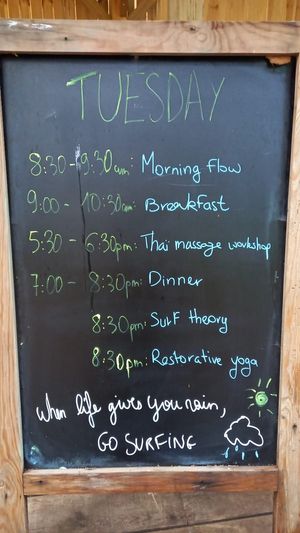 TUESDAY
8:30 - 9:30am: Morning Flow
9:00 - 10:30am: Breakfast
5:30 - 6:30pm: Thai massage workshop
7:00 - 8:30pm: Dinner
8:30pm: Surf theory
8:30pm: Restorative yoga
When life gives you rain,
GO SURFING